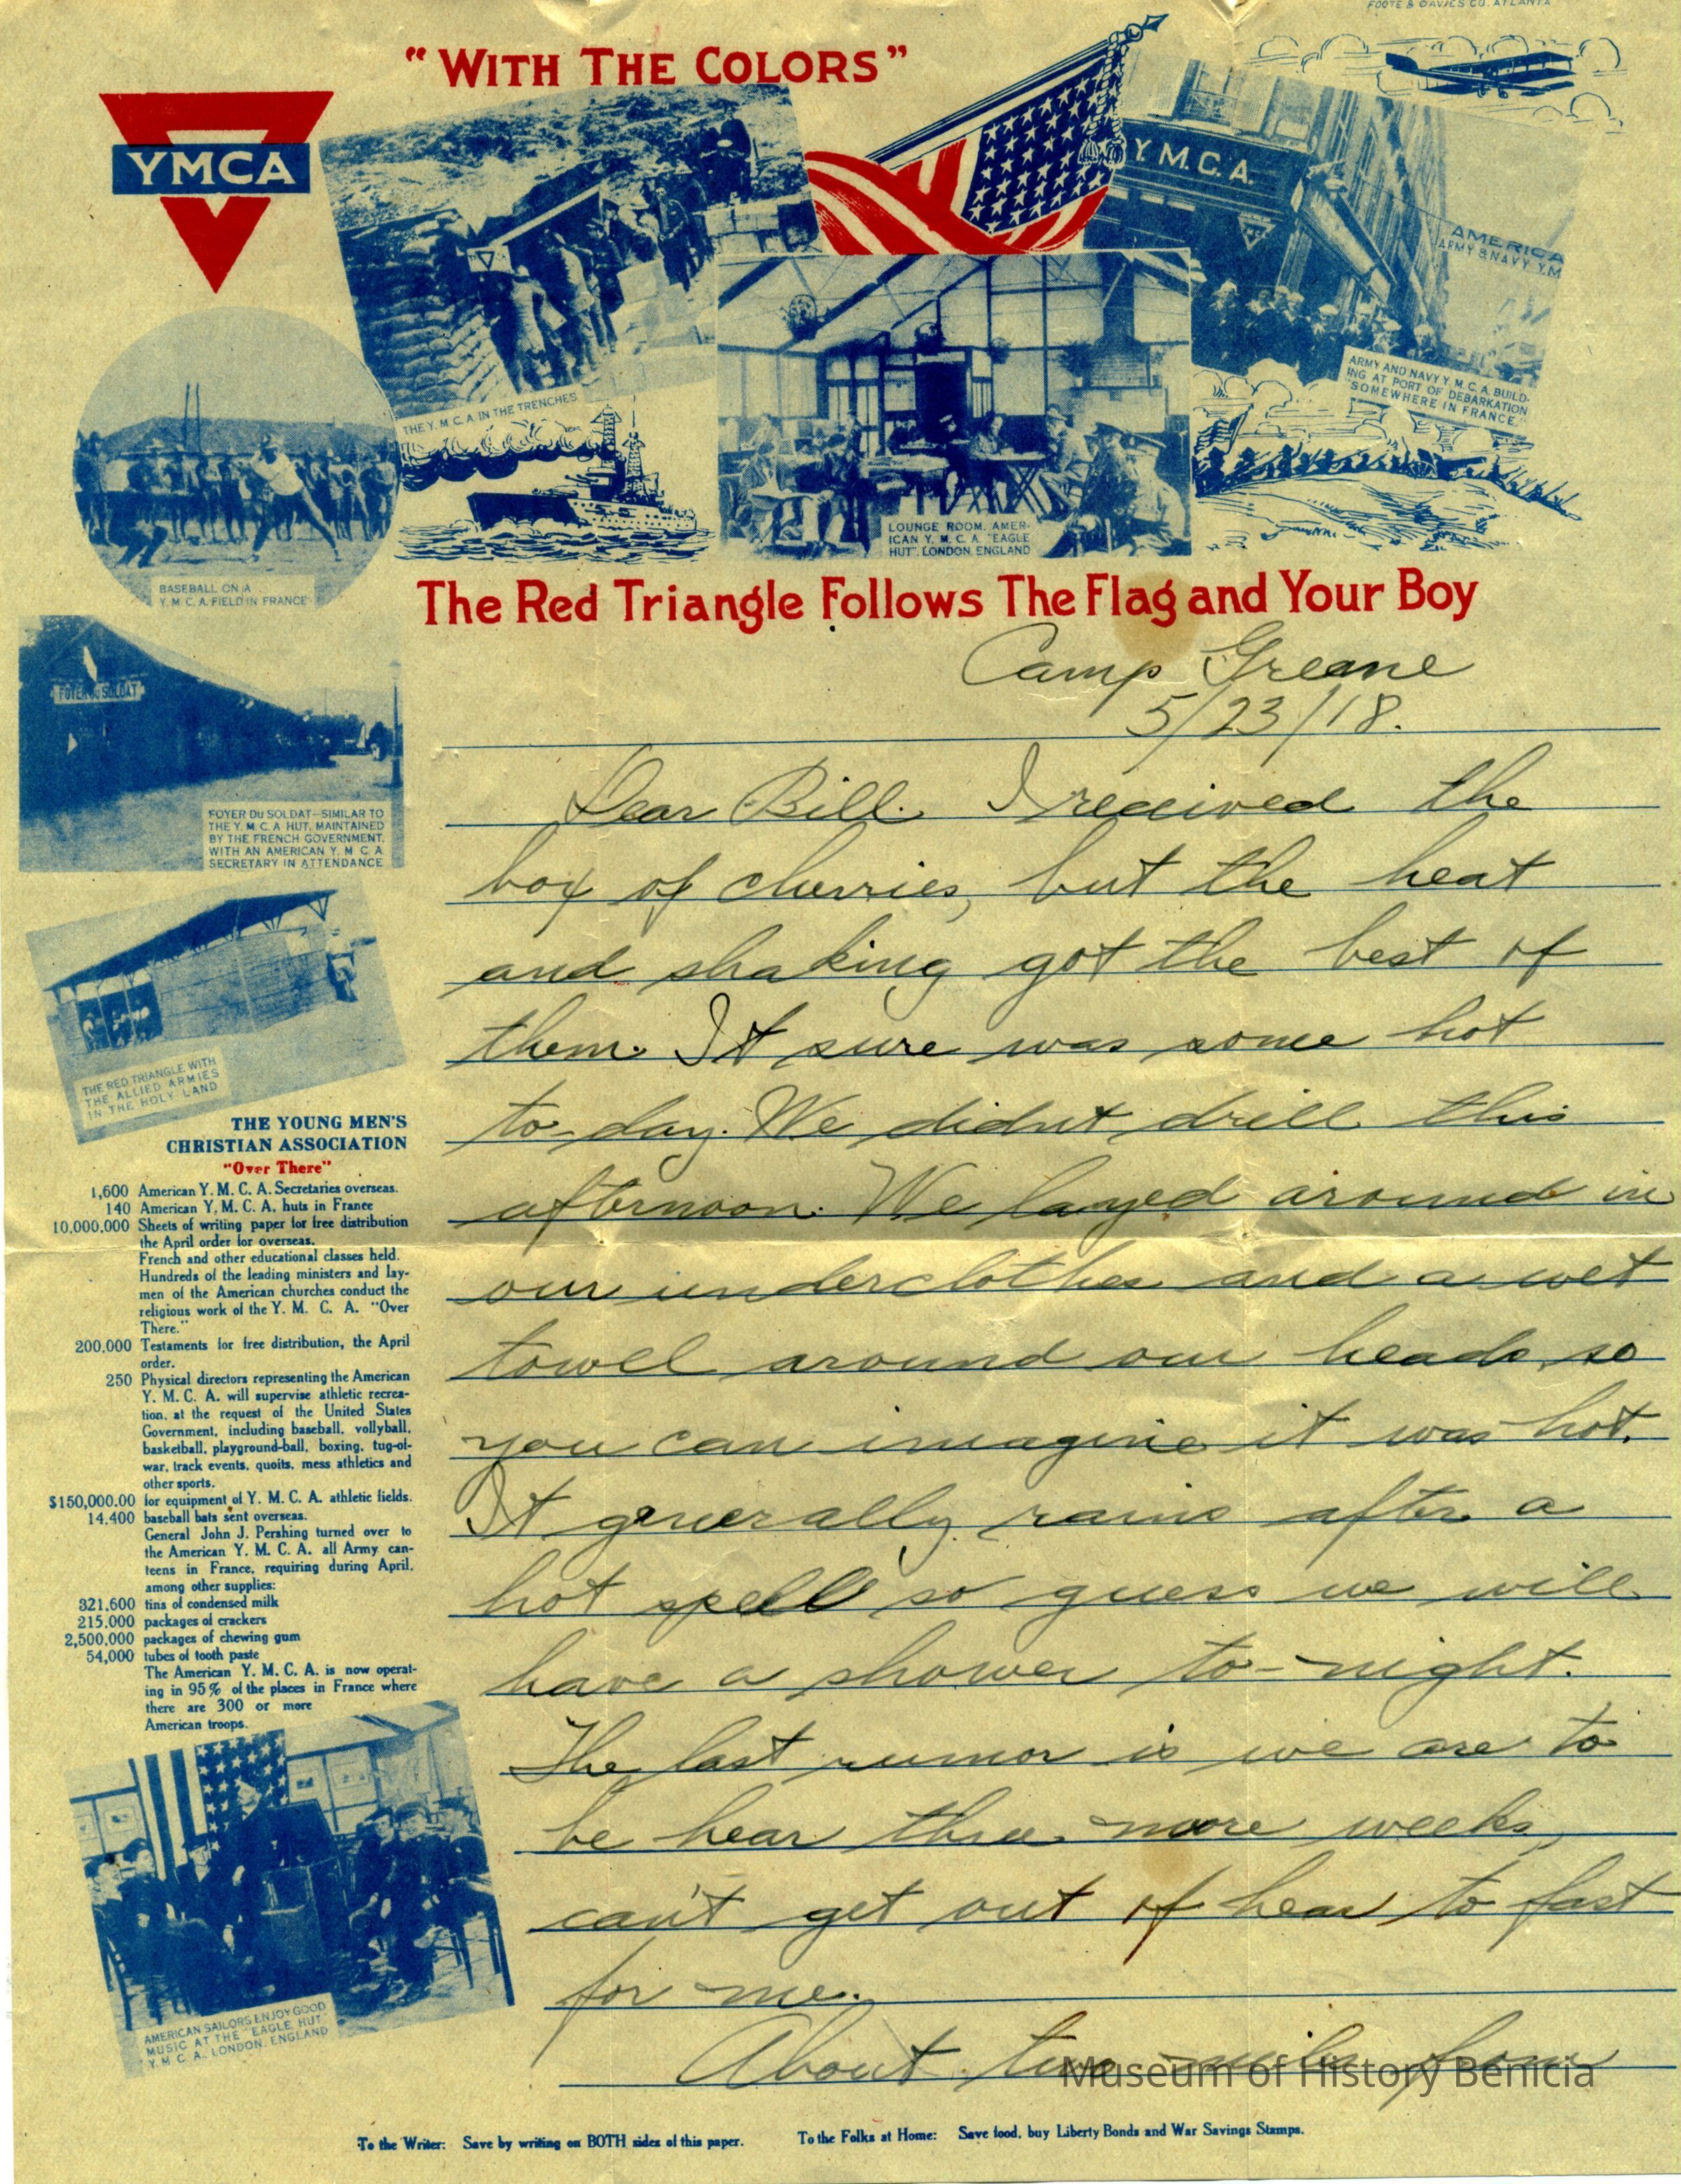 FOOTE & DAVIES CO. ATLANTA
"WITH THE COLORS"
YMCA
Y.M.C.A.
AMERICA
ARMY & NAVY Y.M
THE Y.M.C.A. IN THE TRENCHES
ARMY AND NAVY Y.M.C.A. BUILD-
ING AT PORT OF DEBARKATION
"SOMEWHERE IN FRANCE."
LOUNGE ROOM, AMER-
ICAN Y. M. C. A. "EAGLE
HUT". LONDON, ENGLAND
BASEBALL ON A
Y.M.C.A. FIELD IN FRANCE
The Red Triangle Follows The Flag and Your Boy
FOYER DU SOLDAT
FOYER DU SOLDAT—SIMILAR TO
THE Y. M. C. A. HUT, MAINTAINED
BY THE FRENCH GOVERNMENT,
WITH AN AMERICAN Y. M. C. A.
SECRETARY IN ATTENDANCE
THE RED TRIANGLE WITH
THE ALLIED ARMIES
IN THE HOLY LAND
THE YOUNG MEN'S
CHRISTIAN ASSOCIATION
"Over There"
1,600 American Y. M. C. A. Secretaries overseas.
140 American Y. M. C. A. huts in France
10,000,000 Sheets of writing paper for free distribution
the April order for overseas.
French and other educational classes held.
Hundreds of the leading ministers and lay-
men of the American churches conduct the
religious work of the Y. M. C. A. "Over
There."
200,000 Testaments for free distribution, the April
order.
250 Physical directors representing the American
Y. M. C. A. will supervise athletic recrea-
tion, at the request of the United States
Government, including baseball, vollyball,
basketball, playground-ball, boxing, tug-of-
war, track events, quoits, mess athletics and
other sports.
$150,000.00 for equipment of Y. M. C. A. athletic fields.
14,400 baseball bats sent overseas.
General John J. Pershing turned over to
the American Y. M. C. A. all Army can-
teens in France, requiring during April,
among other supplies:
321,600 tins of condensed milk
215,000 packages of crackers
2,500,000 packages of chewing gum
54,000 tubes of tooth paste
The American Y. M. C. A. is now operat-
ing in 95% of the places in France where
there are 300 or more
American troops.
AMERICAN SAILORS ENJOY GOOD
MUSIC AT THE "EAGLE HUT"
Y. M. C. A. LONDON, ENGLAND
Camp Greene
5/23/18.
Dear Bill. I received the
box of cherries, but the heat
and shaking got the best of
them. It sure was some hot
to-day. We didnt drill this
afternoon. We layed around in
our underclothes and a wet
towel around our heads so
you can imagine it was hot.
It generally rains after a
hot spell so guess we will
have a shower to-night.
The last rumor is we are to
be hear three more weeks,
can't get out of hear to fast
for me.
About two miles from
Museum of History Benicia
To the Writer: Save by writing on BOTH sides of this paper. To the Folks at Home: Save food, buy Liberty Bonds and War Savings Stamps.